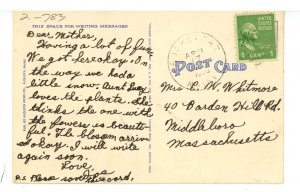 2-783
THIS SPACE FOR WRITING MESSAGES
Dear Mother,
Having a lot of fun.
We got here okay. On
the way we had a
little snow. Aunt
loves the plants. She
thinks the one with
the flowers is beauti-
ful. The blossom arriv-
okay. I will write
again soon.
Love,
P.S.
APR
POST CARD
1 CENT 1
Mrs. L. W. Whitmore
40 Barden Hill Rd.
Middleboro
Massachusetts